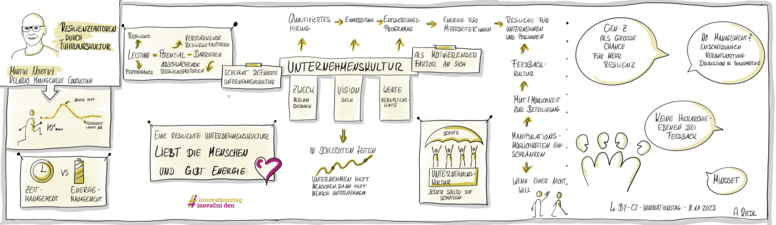 RESILIENZFAKTOREN
DURCH
FÜHRUNGSKULTUR
MARTIN NOVOTNÝ
VELABIO MANAGEMENT CONSULTING
ZEIT-
MANAGEMENT
VS
ENERGIE-
MANAGEMENT
RESILIENZ
VERSTÄRKENDE
RESILIENZFAKTOREN
LEISTUNG = POTENTIAL - BARRIEREN
PERFORMANCE
ABSCHWÄCHENDE
RESILIENZFAKTOREN
EINE RESILIENTE UNTERNEHMENSKULTUR
LIEBT DIE MENSCHEN
UND GIBT ENERGIE
#innovationstag
inovační den
QUALIFIZIERTES
HIRING
EINARBEITUNG
ENTWICKLUNGS-
PROGRAMME
ENERGIE FÜR
MITARBEITER:INNEN
RESILIENZ FÜR
UNTERNEHMEN
UND PERSONEN
SCHLECHT DEFINIERTE
UNTERNEHMENSKULTUR
UNTERNEHMENSKULTUR
ALS MOTIVIERENDER
FAKTOR AN SICH
ZWECK
MISSION
VISION
ZIELE
WERTE
VERHALTENS-
IN SCHLECHTEN ZEITEN
UNTERNEHMEN HILFT
MENSCHEN, DANN HILFT
MENSCH UNTERNEHMEN
SCHUTZ
UNTERNEHMENS-
KULTUR
JEDER SOLLTE SIE
SCHÜTZEN
FEEDBACK-
KULTUR
MUT / MÖGLICHKEIT
ZUR BETEILIGUNG
MANIPULATIONS-
MÖGLICHKEITEN EIN-
SCHRÄNKEN
WENN EINER NICHT
WILL
GEN-Z
ALS GROSSE
CHANCE
FÜR MEHR
RESILIENZ
NO MANAGEMENT?
ENTSCHEIDUNGEN
VERANTWORTUNG
DISKUSSION & TRANSPARENZ
KEINE HIERARCHIE-
EBENEN BEI
FEEDBACK
MINDSET
4. BY-CZ-INNOVATIONSTAG - 8.11.2023